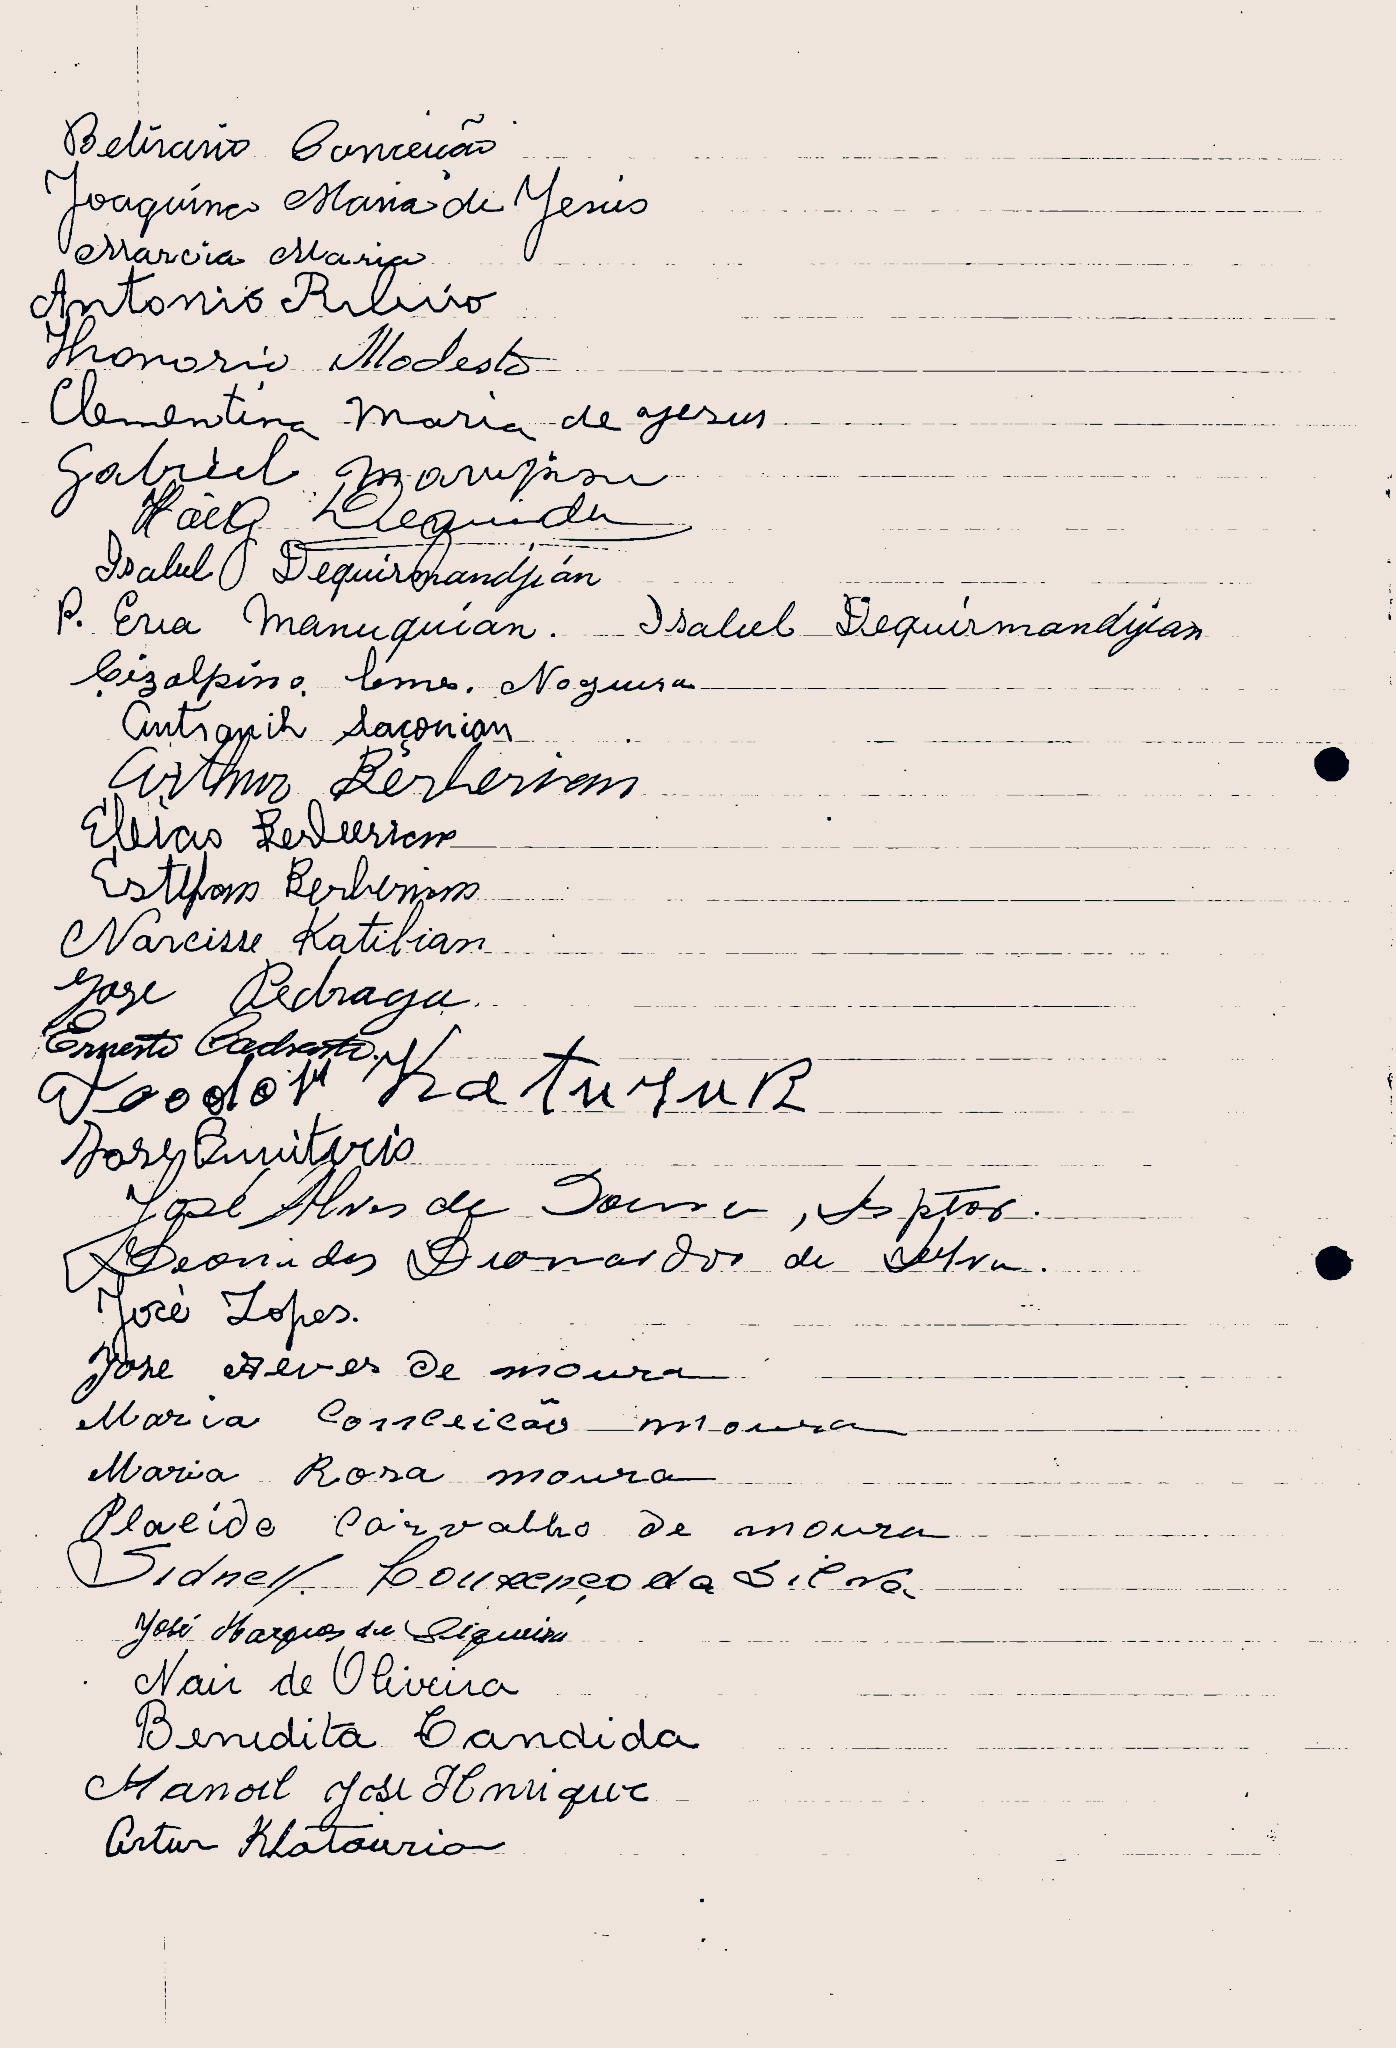 Belizario Conceição
Joaquina Maria de Jesus
Marcia Maria
Antonio Ribeiro
Thonorio Modesto
Clementina Maria de Jesus
Gabriel
Haig
Isabel Dequirmandjian
P. Eva Manuquian. Isabel Dequirmandjian
Cizalpino Leme. Noguera
Antranik Saçonian
Arthur Berberian
Elias Berberian
Estefam Berberian
Narcisse Katibian
José Pedraga.
Ernesto
Teodor Katurur
José
José Alves de Souza,
Leonidas Leonardos de Silva.
José Lopes.
José Neves de moura
Maria Conceicão moura
Maria Rosa moura
Placido Carvalho de moura
Sidney. Lourenço da Silva
José Marques de Siqueira
Nair de Oliveira
Benedita Candida
Manoel José Henrique
Artur Khatourian